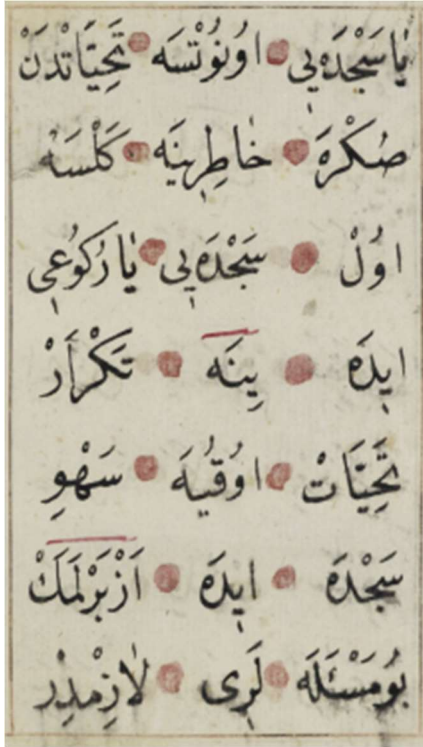 يَا سَجْدَەيِى اوُنُوتْسَه تَحِيَّاتْدَنْ
صُكْرَە خَاطِرِينَه كَلْسَه
اوُلْ سَجْدَەيِى يَا رُكُوعِى
ايدَە يِنَه تَكْرَارْ
تَحِيَّاتْ اوُقُيَه سَهْوِ
سَجْدَە ايدَە اَزْبَرْلَمَكْ
بُو مَسْئَلَه لَرِى لَازِمْدِرْ